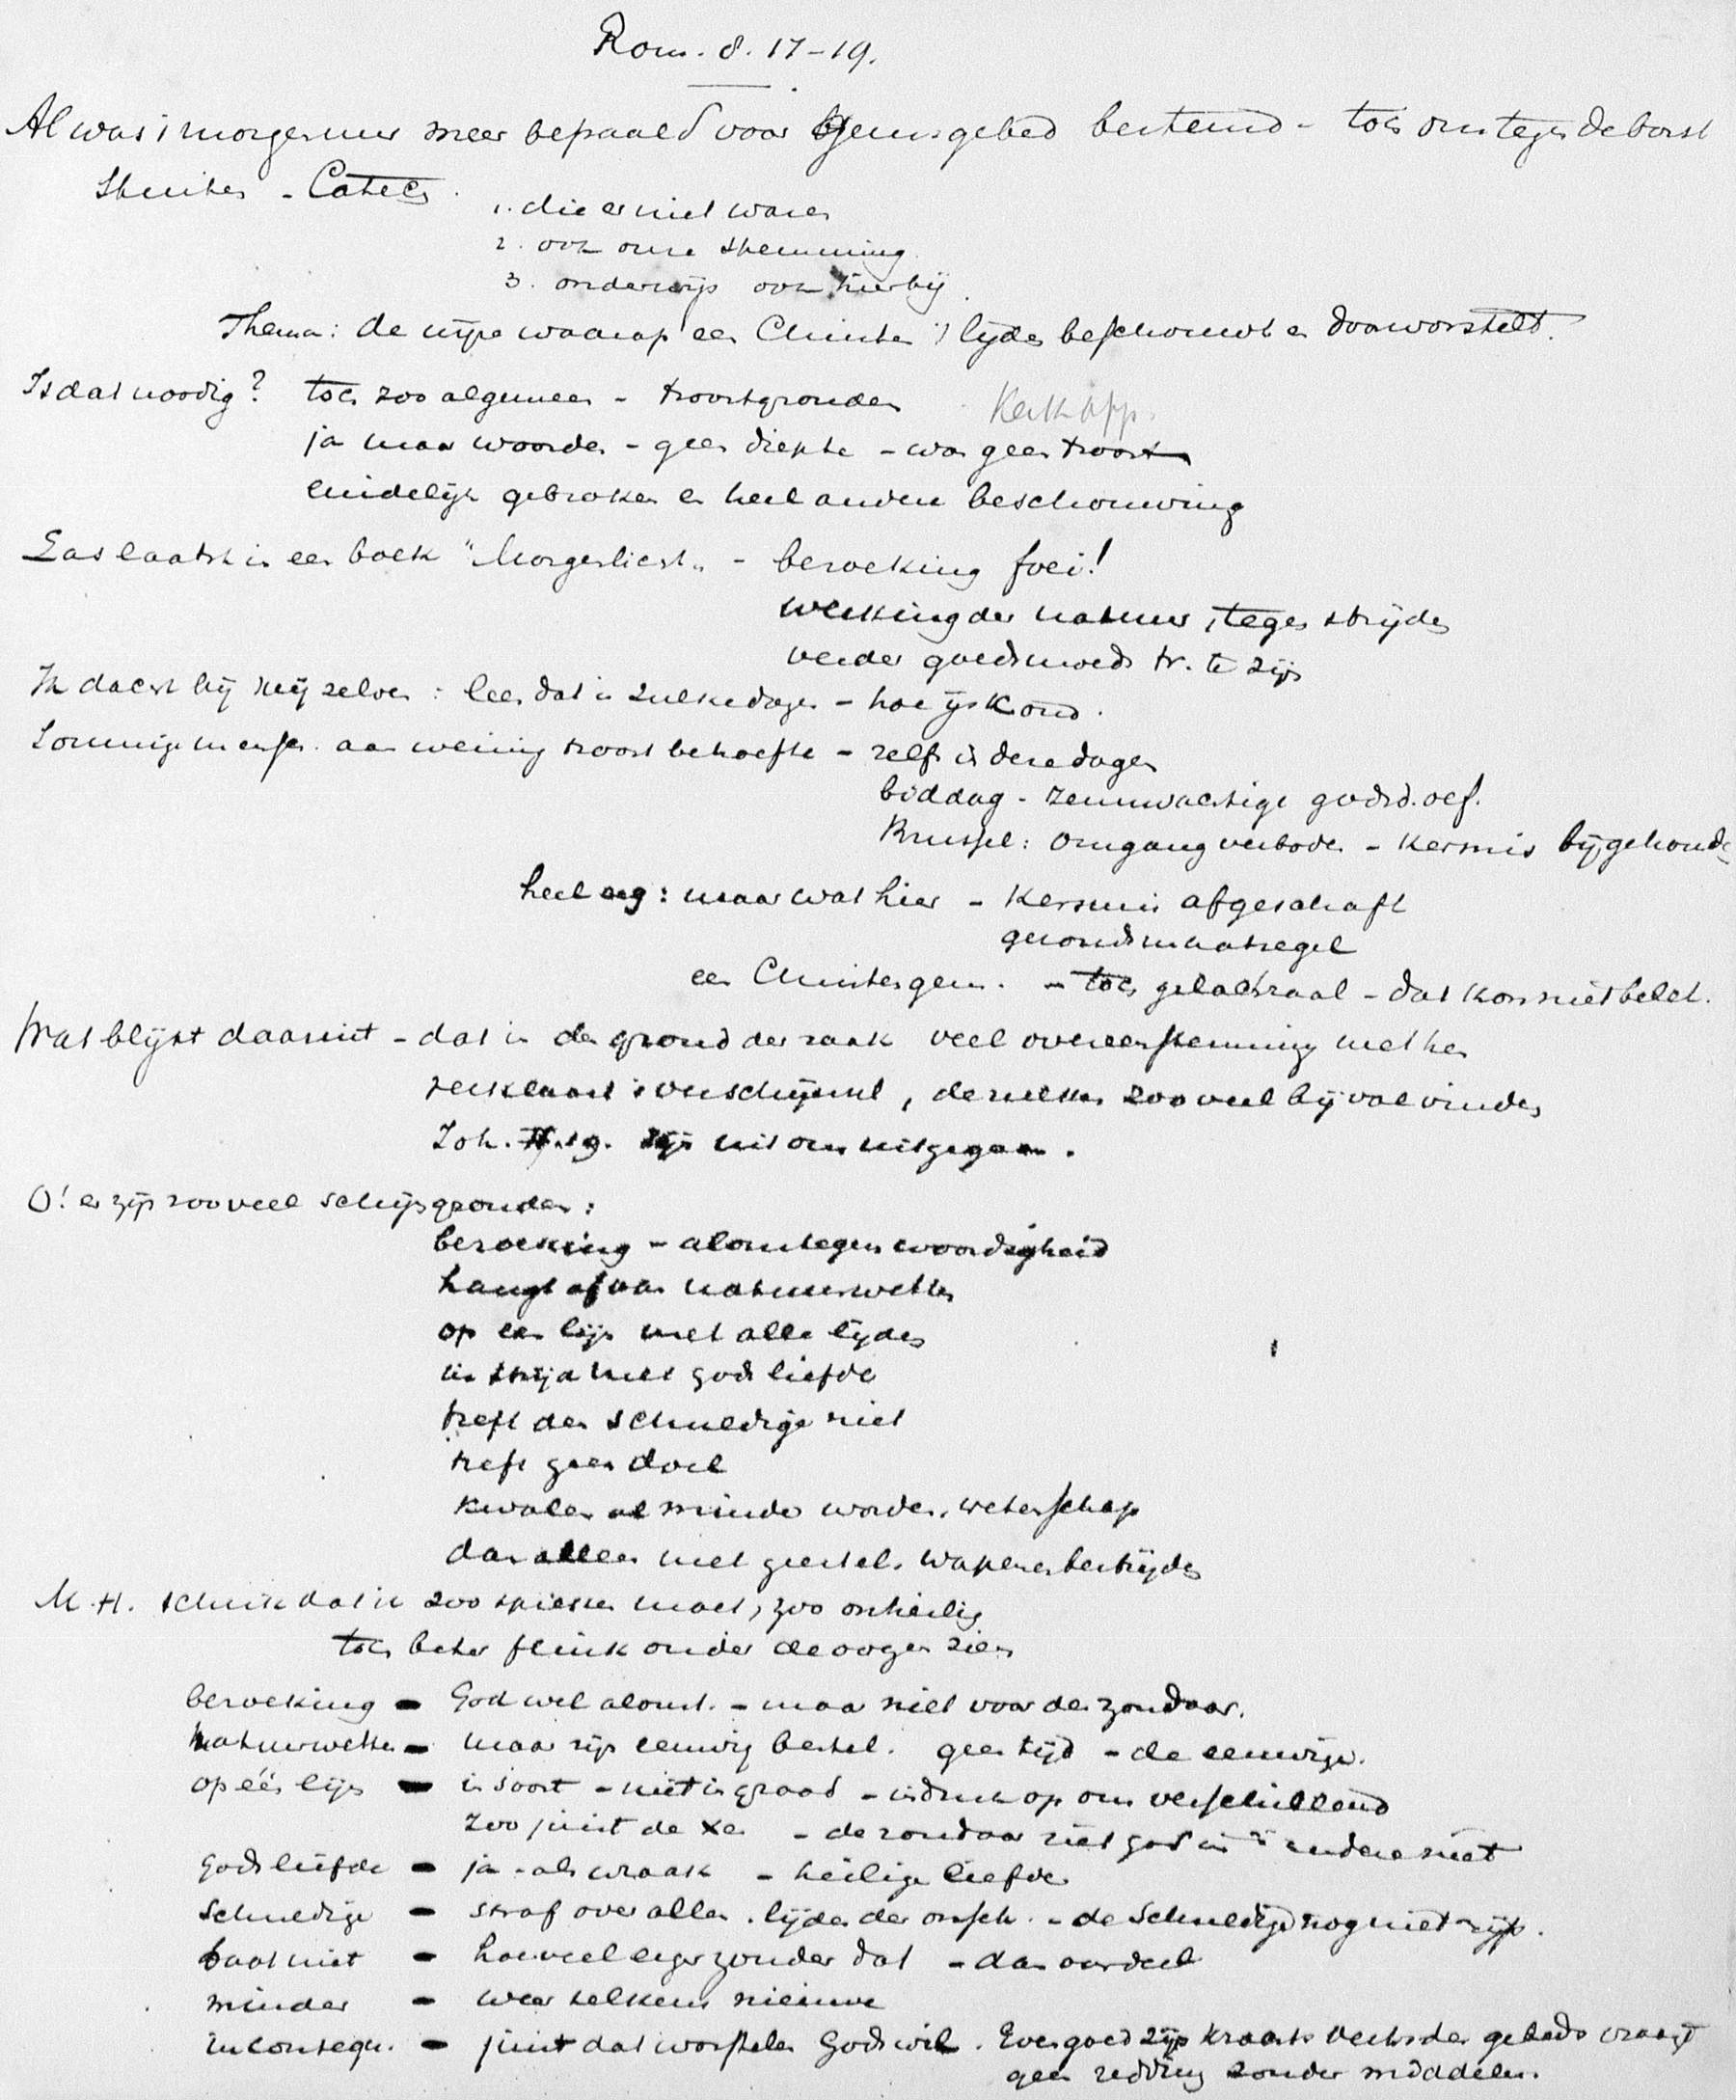 Rom. 8. 17-19.
Al was 's morgenuur meer bepaald voor gebed bestemd - toch ons tegen de borst
stuiten - Catech.
1. die er niet waren
2. ook onze stemming
3. onderwijs ook hierbij.
Thema: de wijze waarop een Christen 't lijden beschouwt en doorworstelt.
Is dat noodig? toch zoo algemeen - troostgronden
ja maar woorden - geen diepte - was geen troost
eindelijk gebroken en heel andere beschouwing
Las laatst in een boek "Morgenlicht" - bezoeking foei!
werking der natuur, tegen strijden
verder goedsmoeds tr. te zijn
Ik dacht bij mij zelven: lees dat in zulke dagen - hoe ijskoud.
Sommige menschen aan weinig troost behoefte - zelfs in deze dagen
biddag - zenuwachtige godsd. oef.
Brussel: omgang verboden - kermis bijgehouden
heel erg: maar wat hier - kermis afgeschaft
gezondsmaatregel
een Christengem. - toch gelachzaal - dat kon niet belet.
Wat blijkt daaruit - dat in den grond der zaak veel overeenstemming met hen
verklaart 't verschijnsel, dezulken zooveel bijval vinden
Joh. zijn uit ons uitgegaan.
O! er zijn zooveel schijngronden:
bezoeking - alomtegenwoordigheid
hangt af van natuurwetten
op een lijn met alle lijden
in strijd met Gods liefde
treft den schuldige niet
treft geen doel
kwalen al minder worden, wetenschap
dan alleen met geestel. wapenen bestrijden
M.H. schrik dat ik zoo spreken moet, zoo onheilig
toch beter flink onder de oogen zien
bezoeking - God wel alomt. - maar niet voor den zondaar.
natuurwetten - maar zijn eeuwig bestel. geen tijd - de eeuwige.
op één lijn - in soort - niet in graad - indruk op ons verschillend
zoo juist de - de zondaar ziet God in 't andere niet
Gods liefde - ja - als wraak - heilige liefde
Schuldige - straf over allen. lijden der onsch. - de Schuldige nog niet rijp.
baat niet - hoeveel erger zonder dat - dan oordeel
minder - weer telkens nieuwe
inconsequ. - juist dat worstelen Gods wil. Evengoed zijn kracht des gebeds vraagt
geen redding zonder middelen.